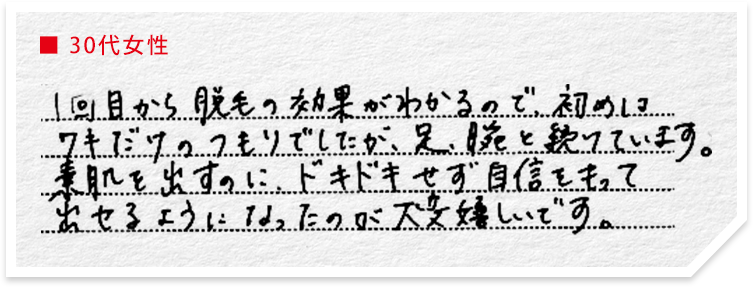 ■ 30代女性
1回目から脱毛の効果がわかるので、初めは
ワキだけのつもりでしたが、足、腕と続けています。
素肌を出すのに、ドキドキせず自信をもって
出せるようになったのが大変嬉しいです。